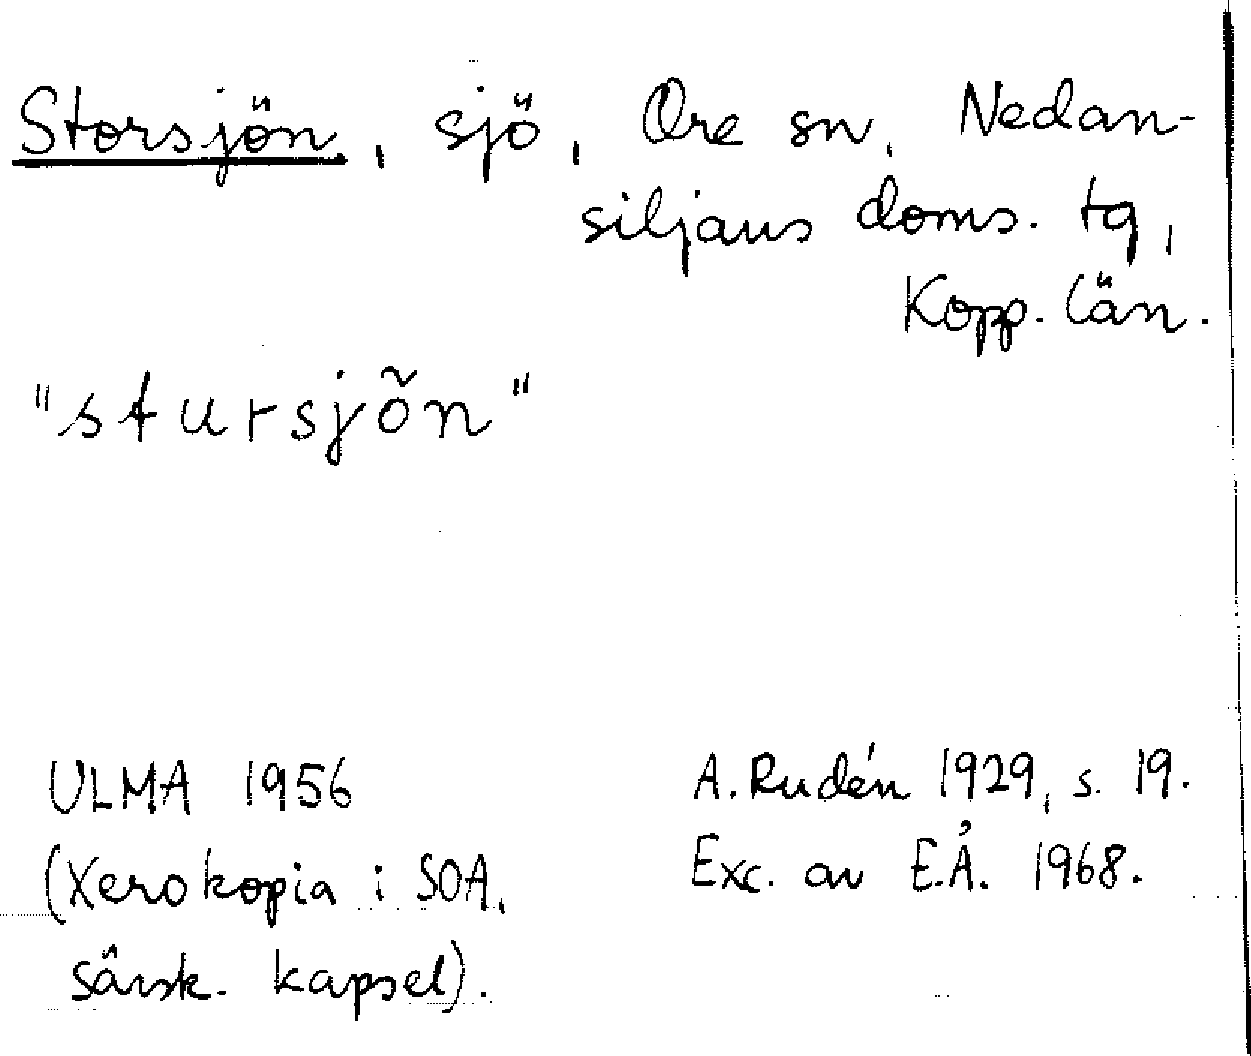 Storsjön, sjö, Ore sn, Nedan-
siljans doms. tg,
Kopp. län.
"stursjõn"
ULMA 1956
(Xerokopia i SOA,
särsk. kapsel).
A. Rudén 1929, s. 19.
Exc. av E.Å. 1968.